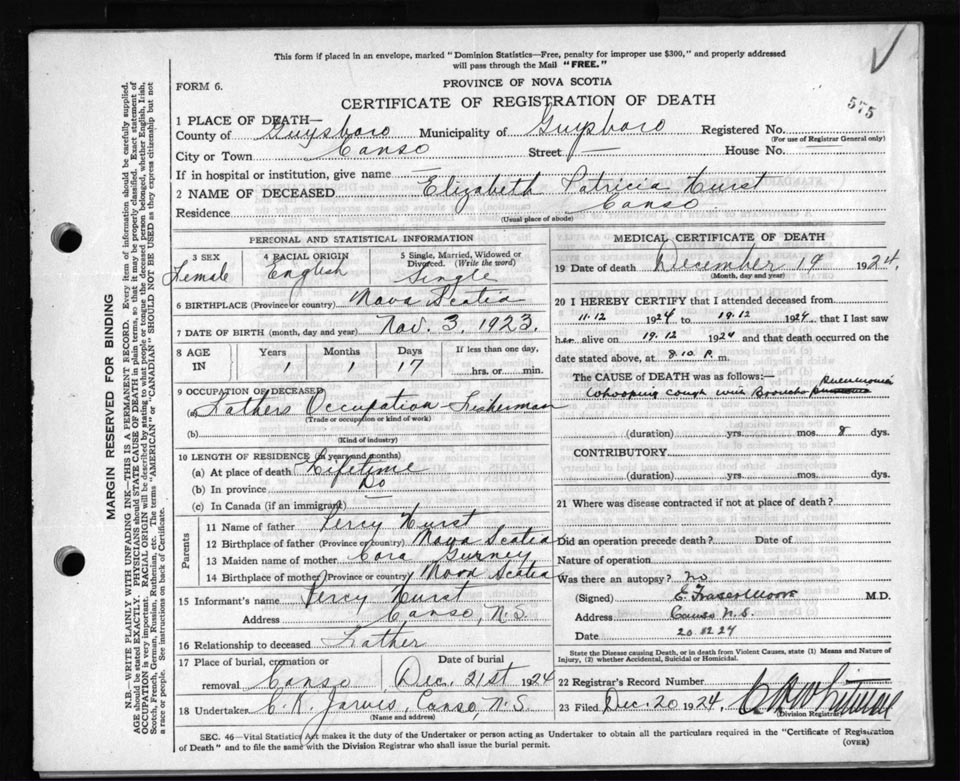 This form if placed in an envelope, marked "Dominion Statistics—Free, penalty for improper use $300," and properly addressed
will pass through the Mail "FREE."
FORM 6.
PROVINCE OF NOVA SCOTIA
CERTIFICATE OF REGISTRATION OF DEATH
575
1 PLACE OF DEATH—
County of Guysboro Municipality of Guysboro Registered No.
(For use of Registrar General only)
City or Town Canso Street — House No.
If in hospital or institution, give name —
2 NAME OF DECEASED Elizabeth Patricia Hurst
Residence Canso
(Usual place of abode)
PERSONAL AND STATISTICAL INFORMATION
3 SEX Female
4 RACIAL ORIGIN English
5 Single, Married, Widowed or Divorced. (Write the word) Single
6 BIRTHPLACE (Province or country) Nova Scotia
7 DATE OF BIRTH (month, day and year) Nov. 3, 1923.
8 AGE IN Years 1 Months 1 Days 17 If less than one day, hrs. or min.
9 OCCUPATION OF DECEASED
(a) Fathers Occupation - Fisherman
(Trade or occupation or kind of work)
(b)
(Kind of industry)
10 LENGTH OF RESIDENCE (in years and months)
(a) At place of death Lifetime
(b) In province Do
(c) In Canada (if an immigrant)
Parents
11 Name of father Percy Hurst
12 Birthplace of father (Province or country) Nova Scotia
13 Maiden name of mother Cora Gurney
14 Birthplace of mother (Province or country) Nova Scotia
15 Informant's name Percy Hurst
Address Canso, N.S.
16 Relationship to deceased Father
17 Place of burial, cremation or removal Canso Date of burial Dec. 21st 1924
18 Undertaker C. R. Jarvis, Canso, N.S.
(Name and address)
MEDICAL CERTIFICATE OF DEATH
19 Date of death December 19 1924.
(Month, day and year)
20 I HEREBY CERTIFY that I attended deceased from
11.12 1924 to 19.12 1924, that I last saw
her alive on 19.12 1924 and that death occurred on the
date stated above, at 8.10 P. m.
The CAUSE of DEATH was as follows:—
Whooping Cough with Broncho Pneumonia
(duration) yrs. mos. 8 dys.
CONTRIBUTORY
(duration) yrs. mos. dys.
21 Where was disease contracted if not at place of death?
Did an operation precede death? Date of
Nature of operation
Was there an autopsy? no
(Signed) E. Fraser Moore M.D.
Address Canso N.S.
Date 20.12.24
State the Disease causing Death, or in death from Violent Causes, state (1) Means and Nature of
Injury, (2) whether Accidental, Suicidal or Homicidal.
22 Registrar's Record Number
23 Filed Dec. 20 1924. Whitman
(Division Registrar)
SEC. 46—Vital Statistics Act makes it the duty of the Undertaker or person acting as Undertaker to obtain all the particulars required in the "Certificate of Registration
of Death" and to file the same with the Division Registrar who shall issue the burial permit.
(OVER)
MARGIN RESERVED FOR BINDING
N.B.—WRITE PLAINLY WITH UNFADING INK—THIS IS A PERMANENT RECORD. Every item of information should be carefully supplied.
AGE should be stated EXACTLY. PHYSICIANS should STATE CAUSE OF DEATH in plain terms, so that it may be properly classified. Exact statement of
OCCUPATION is very important. RACIAL ORIGIN will be described by stating to what people, or tongue, the deceased person belonged, whether English, Irish,
Scotch, French, German, Russian, Ruthenian, etc. The terms "AMERICAN" or "CANADIAN" SHOULD NOT BE USED as they express citizenship but not
a race or people. See instructions on back of Certificate.